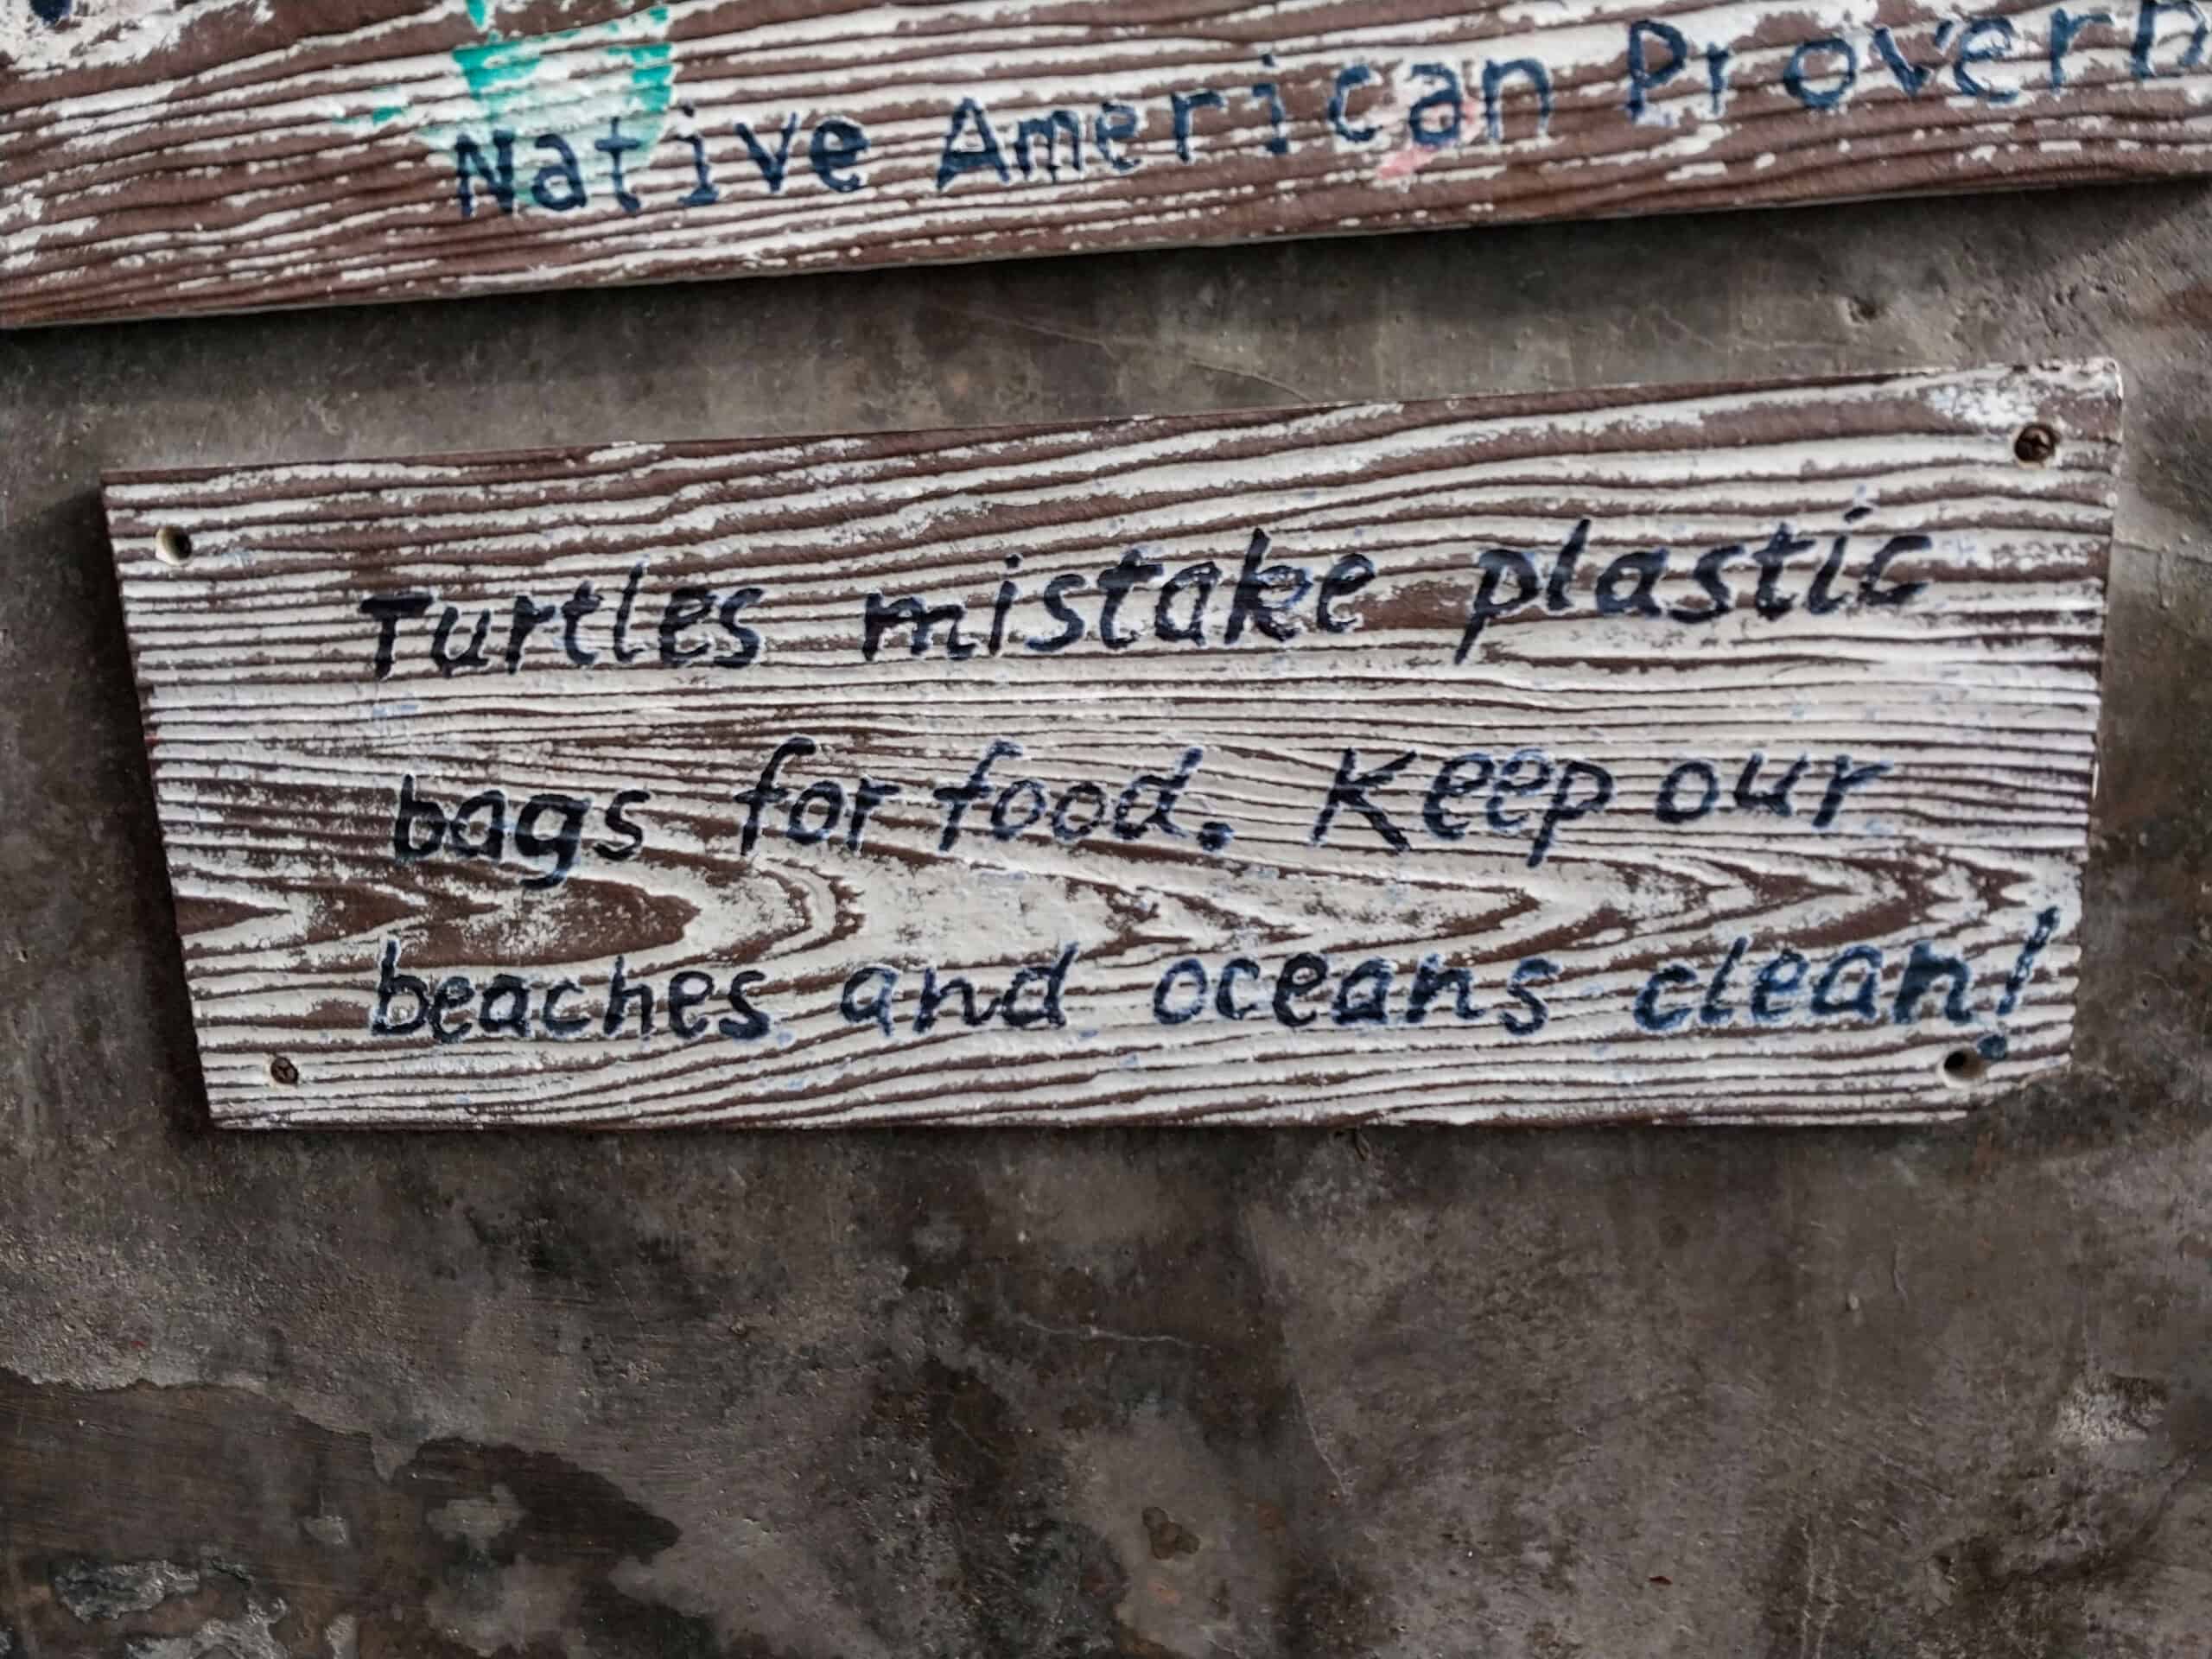 Native American Proverb
Turtles mistake plastic
bags for food. Keep our
beaches and oceans clean!